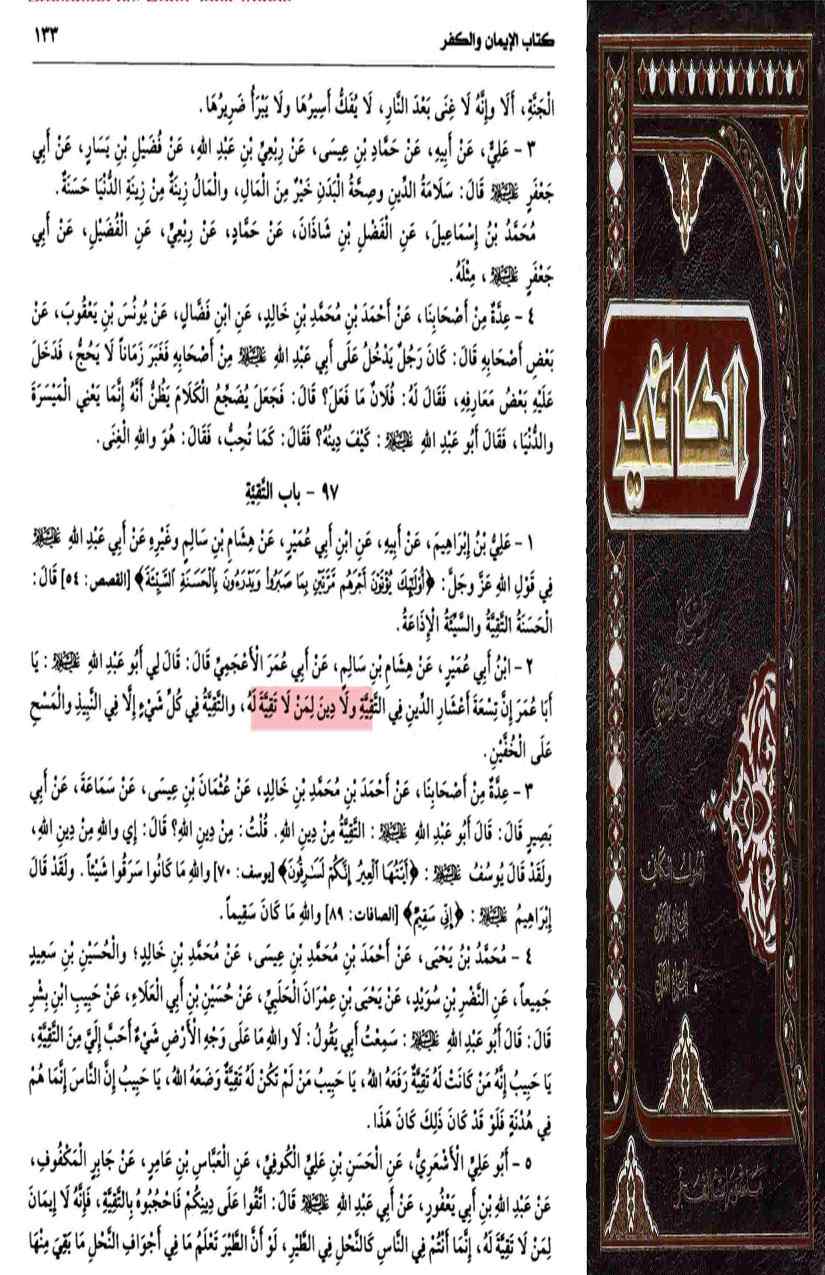 كتاب الإيمان والكفر
١٣٣
الْجَنَّةِ، أَلَا وإِنَّهُ لَا غِنَى بَعْدَ النَّارِ، لَا يُفَكُّ أَسِيرُهَا ولَا يَبْرَأُ ضَرِيرُهَا.
٣ - عَلِيٌّ، عَنْ أَبِيهِ، عَنْ حَمَّادِ بْنِ عِيسَى، عَنْ رِبْعِيِّ بْنِ عَبْدِ اللهِ، عَنْ فُضَيْلِ بْنِ يَسَارٍ، عَنْ أَبِي
جَعْفَرٍ عَلَيْهِ السَّلَام قَالَ: سَلَامَةُ الدِّينِ وصِحَّةُ الْبَدَنِ خَيْرٌ مِنَ الْمَالِ، والْمَالُ زِينَةٌ مِنْ زِينَةِ الدُّنْيَا حَسَنَةٌ.
مُحَمَّدُ بْنُ إِسْمَاعِيلَ، عَنِ الْفَضْلِ بْنِ شَاذَانَ، عَنْ حَمَّادٍ، عَنْ رِبْعِيٍّ، عَنِ الْفُضَيْلِ، عَنْ أَبِي
جَعْفَرٍ عَلَيْهِ السَّلَام، مِثْلَهُ.
٤ - عِدَّةٌ مِنْ أَصْحَابِنَا، عَنْ أَحْمَدَ بْنِ مُحَمَّدِ بْنِ خَالِدٍ، عَنِ ابْنِ فَضَّالٍ، عَنْ يُونُسَ بْنِ يَعْقُوبَ، عَنْ
بَعْضِ أَصْحَابِهِ قَالَ: كَانَ رَجُلٌ يَدْخُلُ عَلَى أَبِي عَبْدِ اللهِ عَلَيْهِ السَّلَام مِنْ أَصْحَابِهِ فَغَبَرَ زَمَاناً لَا يَحُجُّ، فَدَخَلَ
عَلَيْهِ بَعْضُ مَعَارِفِهِ، فَقَالَ لَهُ: فُلَانٌ مَا فَعَلَ؟ قَالَ: فَجَعَلَ يُضَجِّعُ الْكَلَامَ يَظُنُّ أَنَّهُ إِنَّمَا يَعْنِي الْمَيْسَرَةَ
والدُّنْيَا، فَقَالَ أَبُو عَبْدِ اللهِ عَلَيْهِ السَّلَام: كَيْفَ دِينُهُ؟ فَقَالَ: كَمَا تُحِبُّ، فَقَالَ: هُوَ واللهِ الْغِنَى.
٩٧ - باب التَّقِيَّةِ
١ - عَلِيُّ بْنُ إِبْرَاهِيمَ، عَنْ أَبِيهِ، عَنِ ابْنِ أَبِي عُمَيْرٍ، عَنْ هِشَامِ بْنِ سَالِمٍ وغَيْرِهِ عَنْ أَبِي عَبْدِ اللهِ عَلَيْهِ السَّلَام
فِي قَوْلِ اللهِ عَزَّ وجَلَّ: ﴿أُوْلَٰٓئِكَ يُؤْتَوْنَ أَجْرَهُم مَّرَّتَيْنِ بِمَا صَبَرُواْ وَيَدْرَءُونَ بِٱلْحَسَنَةِ ٱلسَّيِّئَةَ﴾ [القصص: ٥٤] قَالَ:
الْحَسَنَةُ التَّقِيَّةُ والسَّيِّئَةُ الْإِذَاعَةُ.
٢ - ابْنُ أَبِي عُمَيْرٍ، عَنْ هِشَامِ بْنِ سَالِمٍ، عَنْ أَبِي عُمَرَ الْأَعْجَمِيِّ قَالَ: قَالَ لِي أَبُو عَبْدِ اللهِ عَلَيْهِ السَّلَام: يَا
أَبَا عُمَرَ إِنَّ تِسْعَةَ أَعْشَارِ الدِّينِ فِي التَّقِيَّةِ ولَا دِينَ لِمَنْ لَا تَقِيَّةَ لَهُ، والتَّقِيَّةُ فِي كُلِّ شَيْءٍ إِلَّا فِي النَّبِيذِ والْمَسْحِ
عَلَى الْخُفَّيْنِ.
٣ - عِدَّةٌ مِنْ أَصْحَابِنَا، عَنْ أَحْمَدَ بْنِ مُحَمَّدِ بْنِ خَالِدٍ، عَنْ عُثْمَانَ بْنِ عِيسَى، عَنْ سَمَاعَةَ، عَنْ أَبِي
بَصِيرٍ قَالَ: قَالَ أَبُو عَبْدِ اللهِ عَلَيْهِ السَّلَام: التَّقِيَّةُ مِنْ دِينِ اللهِ. قُلْتُ: مِنْ دِينِ اللهِ؟ قَالَ: إِي واللهِ مِنْ دِينِ اللهِ،
ولَقَدْ قَالَ يُوسُفُ عَلَيْهِ السَّلَام: ﴿أَيَّتُهَا ٱلْعِيرُ إِنَّكُمْ لَسَٰرِقُونَ﴾ [يوسف: ٧٠] واللهِ مَا كَانُوا سَرَقُوا شَيْئاً. ولَقَدْ قَالَ
إِبْرَاهِيمُ عَلَيْهِ السَّلَام: ﴿إِنِّى سَقِيمٌ﴾ [الصافات: ٨٩] واللهِ مَا كَانَ سَقِيماً.
٤ - مُحَمَّدُ بْنُ يَحْيَى، عَنْ أَحْمَدَ بْنِ مُحَمَّدِ بْنِ عِيسَى، عَنْ مُحَمَّدِ بْنِ خَالِدٍ؛ والْحُسَيْنِ بْنِ سَعِيدٍ
جَمِيعاً، عَنِ النَّضْرِ بْنِ سُوَيْدٍ، عَنْ يَحْيَى بْنِ عِمْرَانَ الْحَلَبِيِّ، عَنْ حُسَيْنِ بْنِ أَبِي الْعَلَاءِ، عَنْ حَبِيبِ ابْنِ بِشْرٍ
قَالَ: قَالَ أَبُو عَبْدِ اللهِ عَلَيْهِ السَّلَام: سَمِعْتُ أَبِي يَقُولُ: لَا واللهِ مَا عَلَى وَجْهِ الْأَرْضِ شَيْءٌ أَحَبَّ إِلَيَّ مِنَ التَّقِيَّةِ،
يَا حَبِيبُ إِنَّهُ مَنْ كَانَتْ لَهُ تَقِيَّةٌ رَفَعَهُ اللهُ، يَا حَبِيبُ مَنْ لَمْ تَكُنْ لَهُ تَقِيَّةٌ وَضَعَهُ اللهُ، يَا حَبِيبُ إِنَّ النَّاسَ إِنَّمَا هُمْ
فِي هُدْنَةٍ فَلَوْ قَدْ كَانَ ذَلِكَ كَانَ هَذَا.
٥ - أَبُو عَلِيٍّ الْأَشْعَرِيُّ، عَنِ الْحَسَنِ بْنِ عَلِيٍّ الْكُوفِيِّ، عَنِ الْعَبَّاسِ بْنِ عَامِرٍ، عَنْ جَابِرٍ الْمَكْفُوفِ،
عَنْ عَبْدِ اللهِ بْنِ أَبِي يَعْفُورٍ، عَنْ أَبِي عَبْدِ اللهِ عَلَيْهِ السَّلَام قَالَ: اتَّقُوا عَلَى دِينِكُمْ فَاحْجُبُوهُ بِالتَّقِيَّةِ، فَإِنَّهُ لَا إِيمَانَ
لِمَنْ لَا تَقِيَّةَ لَهُ، إِنَّمَا أَنْتُمْ فِي النَّاسِ كَالنَّحْلِ فِي الطَّيْرِ، لَوْ أَنَّ الطَّيْرَ تَعْلَمُ مَا فِي أَجْوَافِ النَّحْلِ مَا بَقِيَ مِنْهَا
الكافي